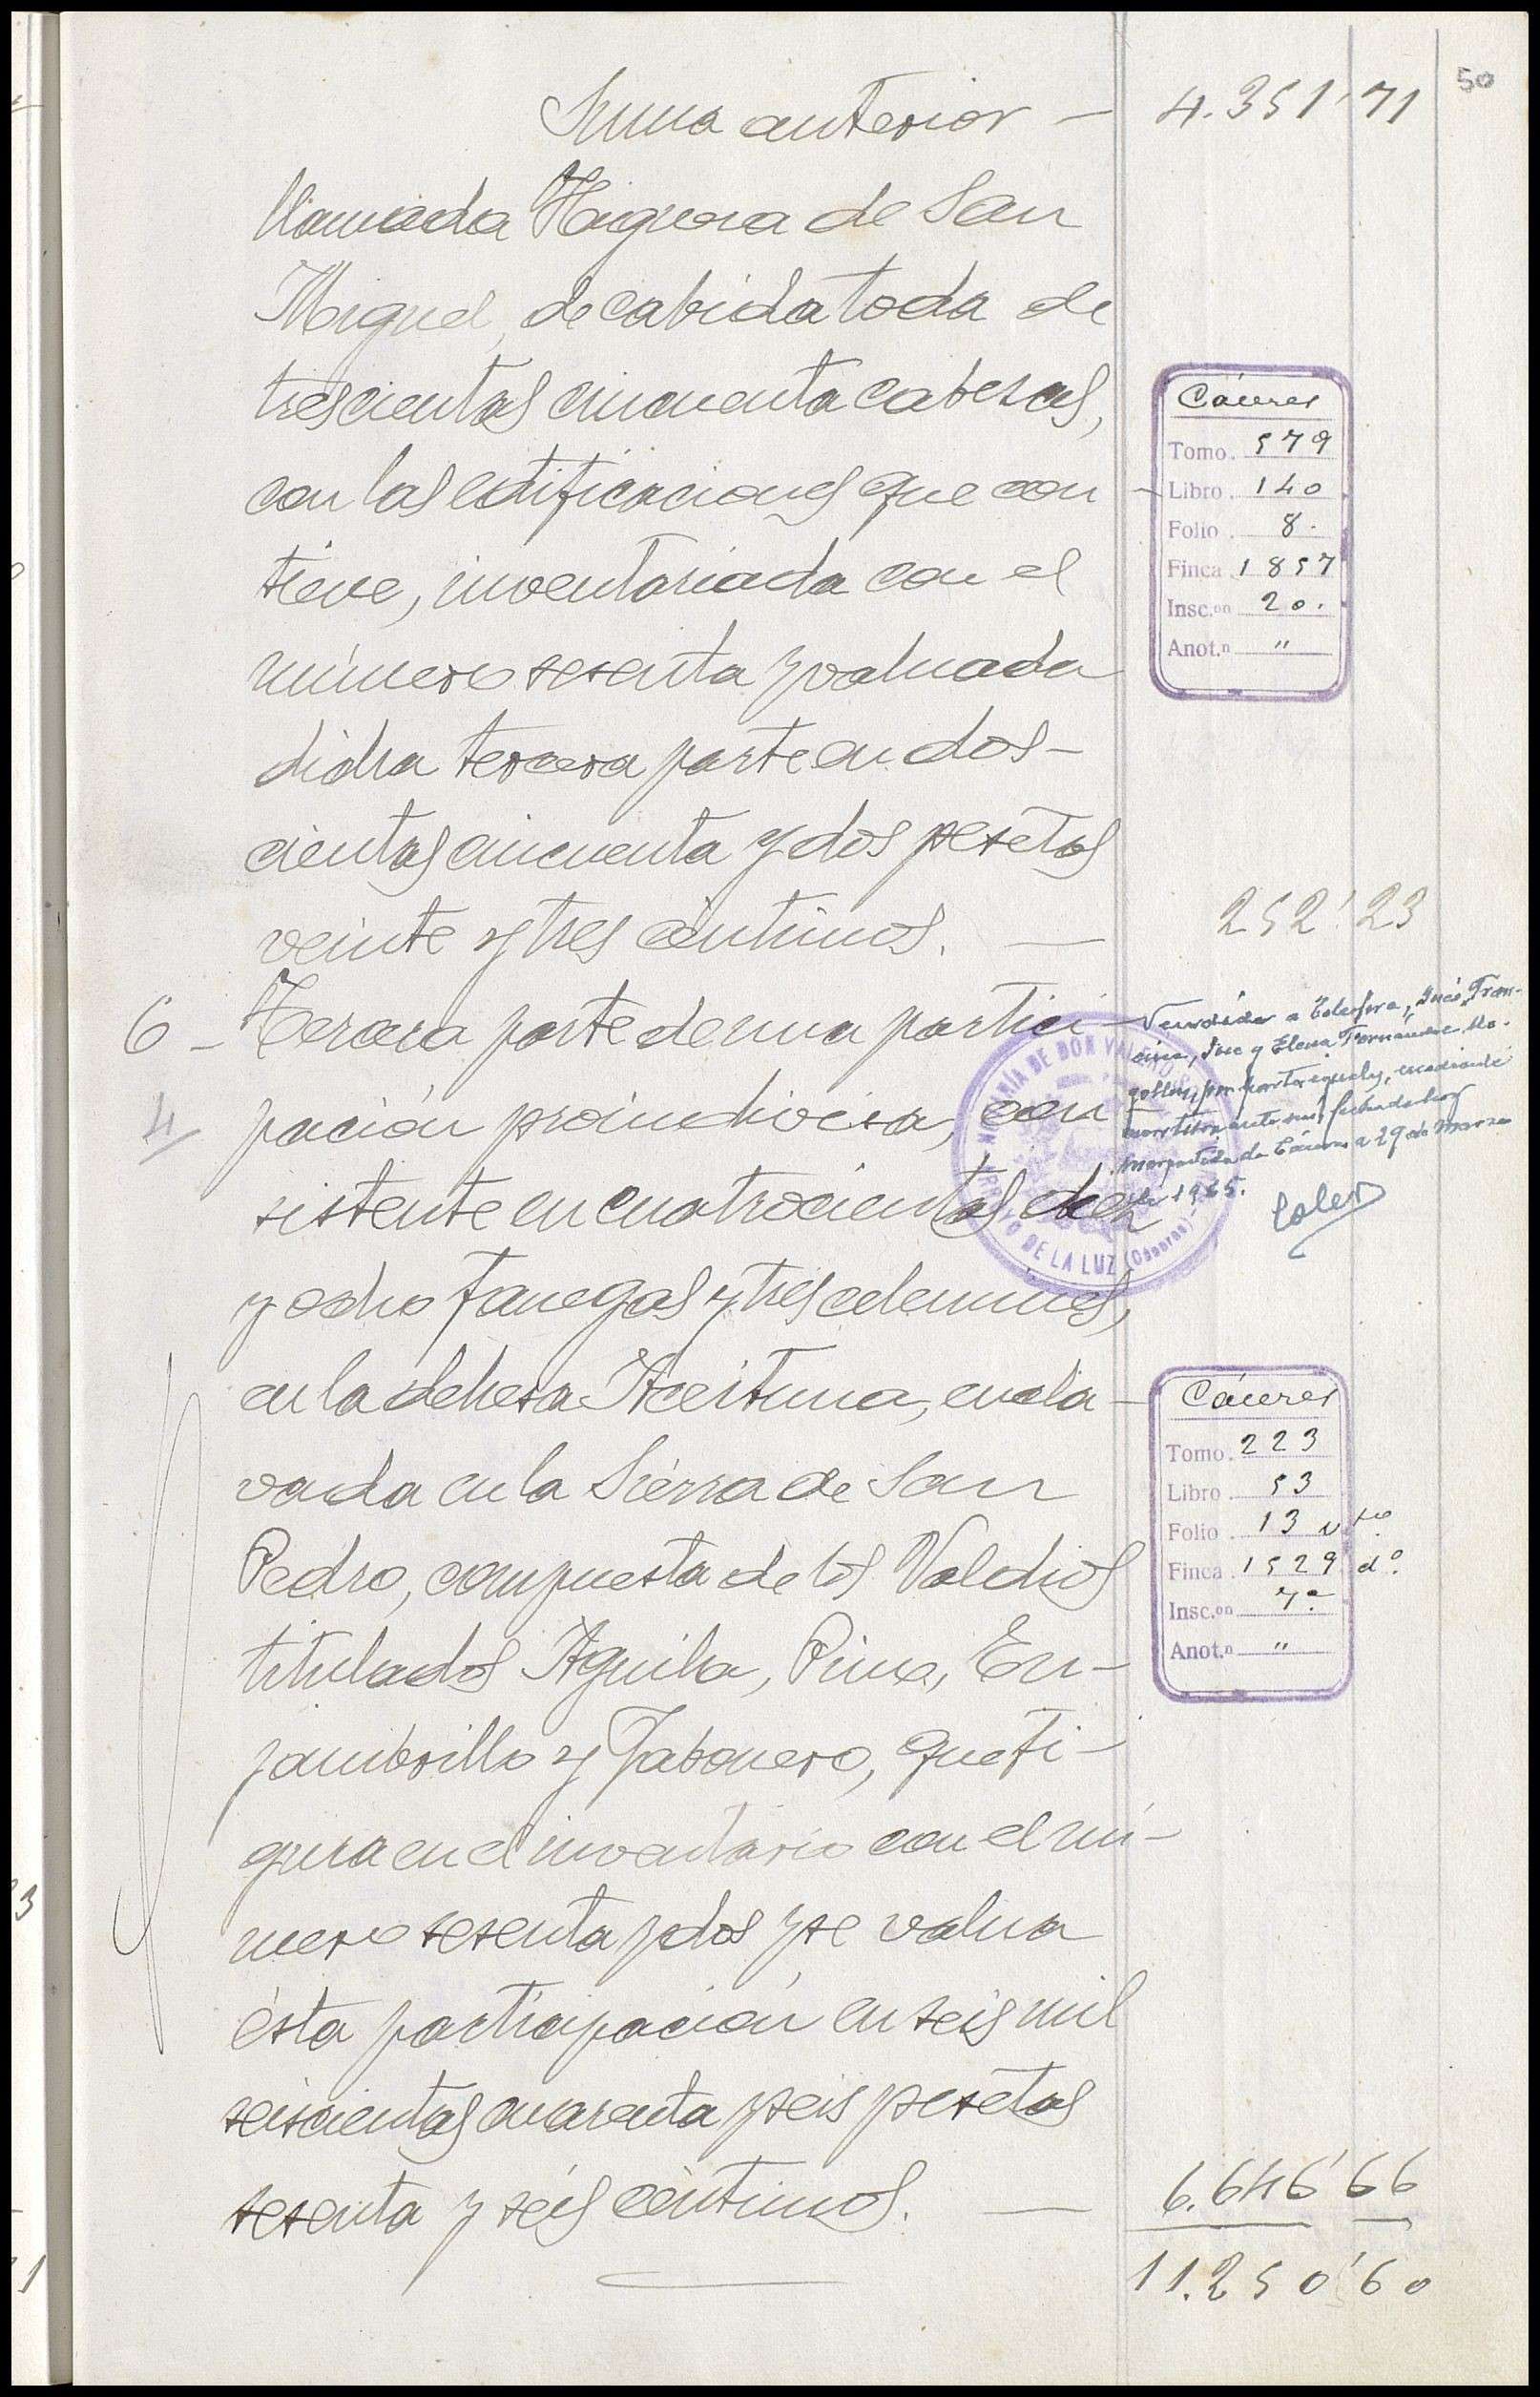 50
Suma anterior — 4.351'71
llamada Higuera de San
Miguel, de cabida toda de
trescientas cincuenta cabezas,
con las edificaciones que con-
tiene, inventariada con el
número sesenta y valuada
dicha tercera parte en dos-
cientas cincuenta y dos pesetas
veinte y tres céntimos. — 252'23
Cáceres
Tomo. 579
Libro. 140
Folio. 8.
Finca 1857
Insc.on 20.
Anot.n "
6 - Tercera parte de una partici-
4/ pación proindivisa, con-
sistente en cuatrocientas diez
y ocho fanegas y tres celemines,
en la dehesa Aceituna, encla-
vada en la Sierra de San
Pedro, compuesta de los Valdios
titulados Aguila, Pino, En-
jambrillo y Jabonero, que fi-
gura en el inventario con el nú-
mero sesenta y dos y se valua
ésta participación en seis mil
seiscientas cuarenta y seis pesetas
sesenta y séis céntimos. — 6.646'66
11.250'60
Vendida a Telesfora, Inés, Fran-
cisca, y Elena
por partes iguales, mediante
ante mi, fecha de hoy
Cáceres a 29 de Marzo
de 1965.
NOTARÍA DE DON VALERO
ARROYO DE LA LUZ (Cáceres)
Cáceres
Tomo. 223
Libro 53
Folio. 13 vto
Finca. 1529 do.
Insc.on 7a
Anot.n "